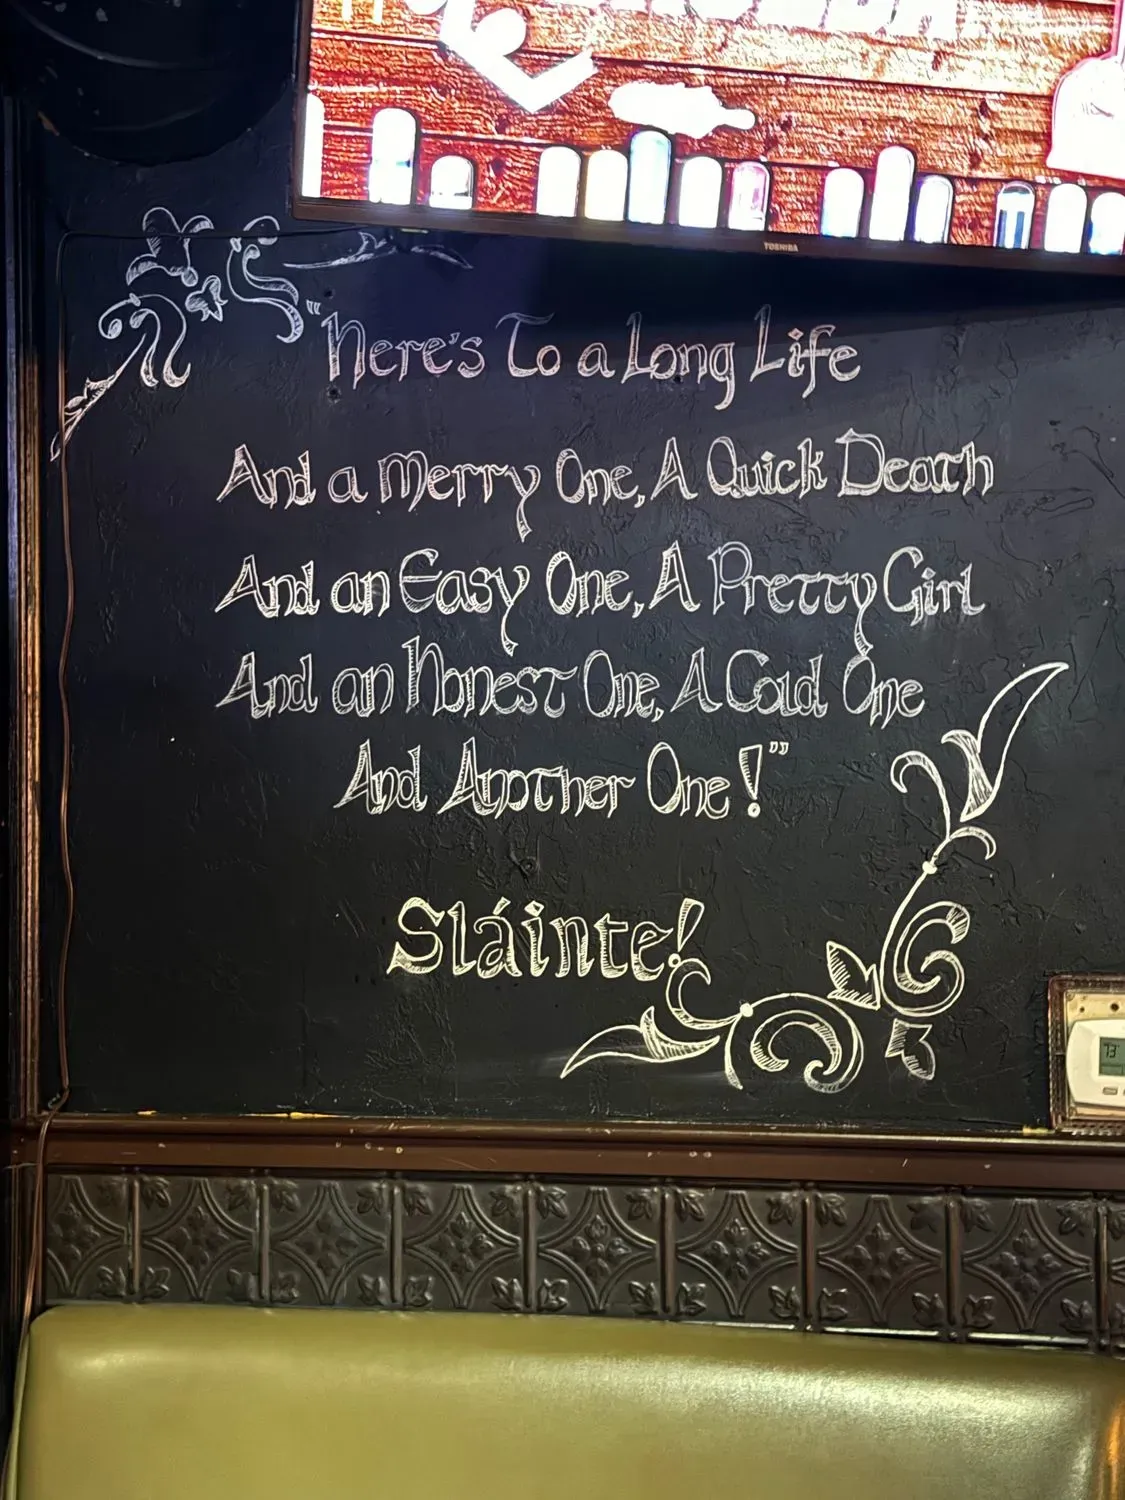 TOSHIBA
"Here's To a Long Life
And a Merry One, A Quick Death
And an Easy One, A Pretty Girl
And an Honest One, A Cold One
And Another One!"
Sláinte!
73°